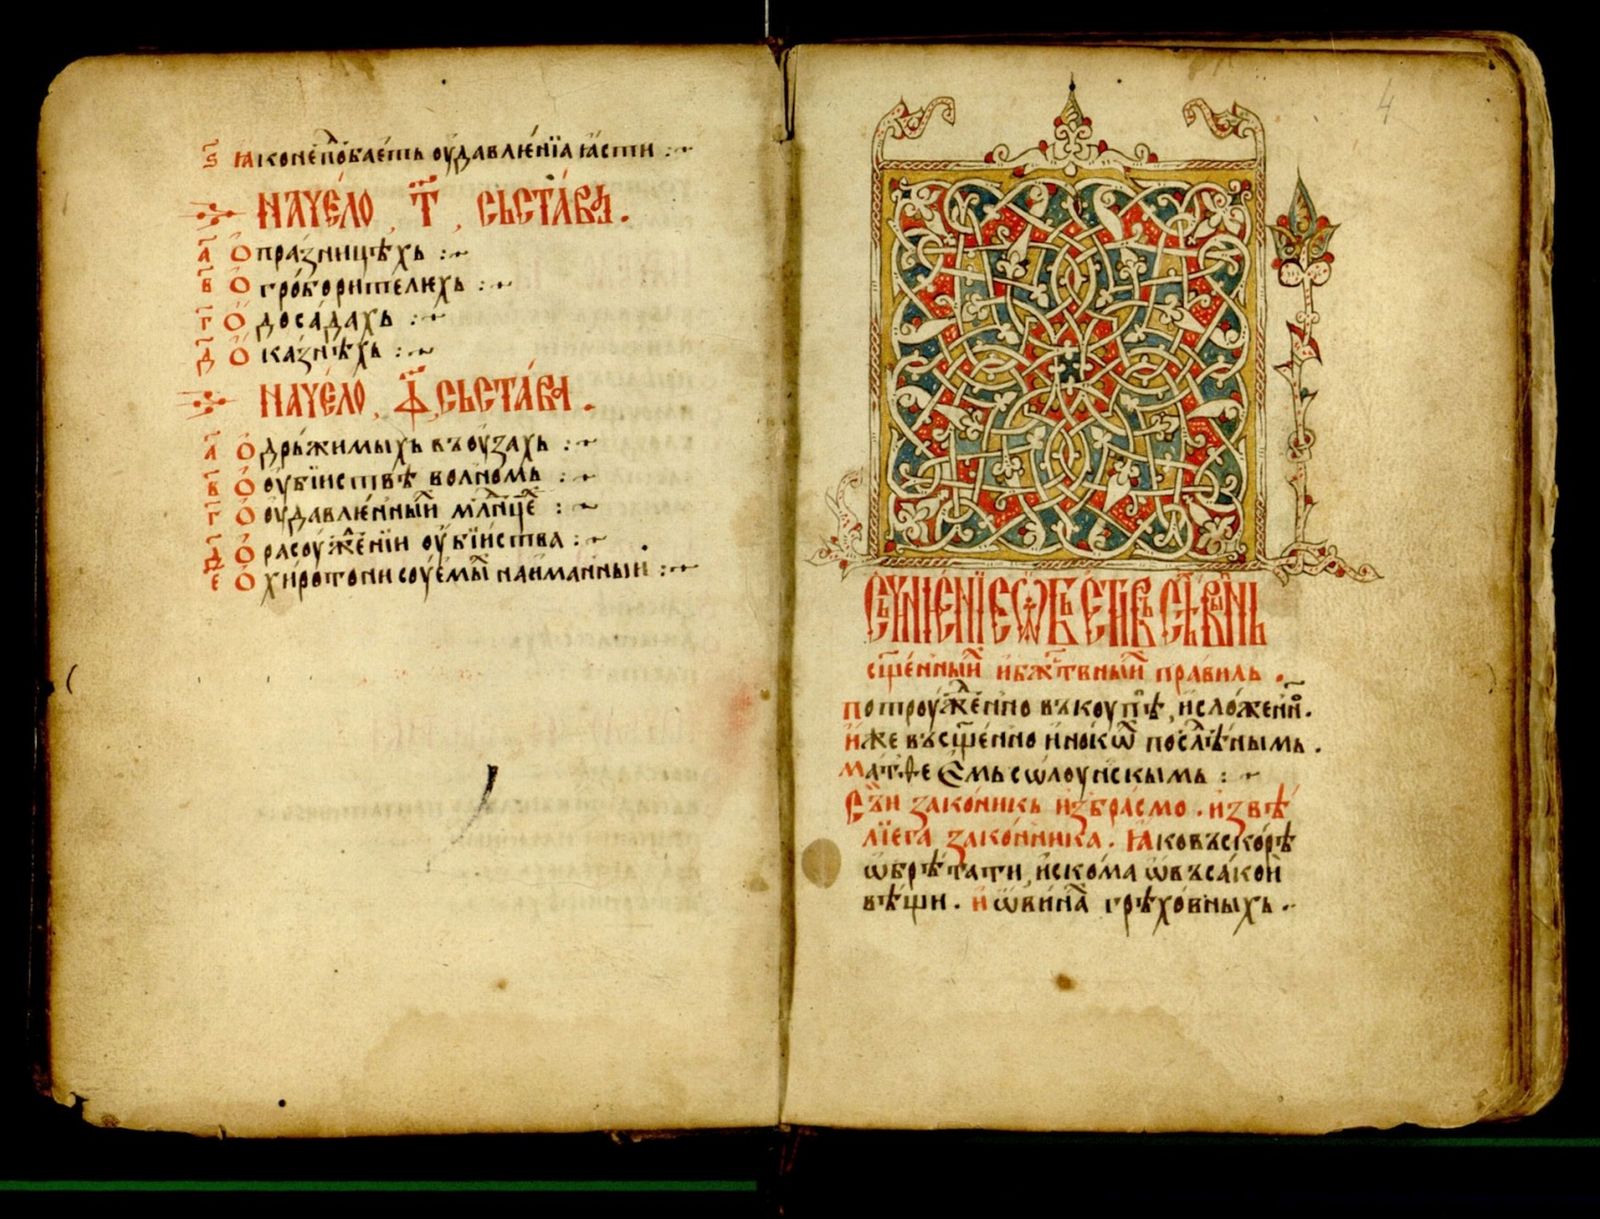 ѕ҃ ꙗко неподбаеть оудавлюнїа ꙗсти :~
НАЧЕ́ЛО , Т҃ , СЬСТА́ВА .
а҃ О празницѣхь :~
в҃ О гроборителюхь :~
г҃ О досадахь :~
д҃ О казнѣхь :~
НАЧЕ́ЛО , Ѱ҃ , СЬСТА́ВА .
а҃ О дрьжимыхь въ оузахь :~
в҃ О оубїиствѣ волномь :~
г҃ О оудавлюнныи младнце :~
д҃ О расоужденїи оубїиства :~
е҃ О хиротони соуемыи наиманныи :~
4
СЬЧИНЕНЇЕ
сщ҃енныи и бжт҃вныи правиль .
по троужденно въкоупѣ , исложенно .
иже въ сщ҃енно инокѡ послѣднымь .
матѳеемь сѡлоунскымь :~
Сьи законикь избрасмо . из вѣ
лїега законника . ꙗко въскорѣ
ѡбрѣтати , искома ѡ въсакои
вѣщи . и ѿ вина грѣховныхь .~